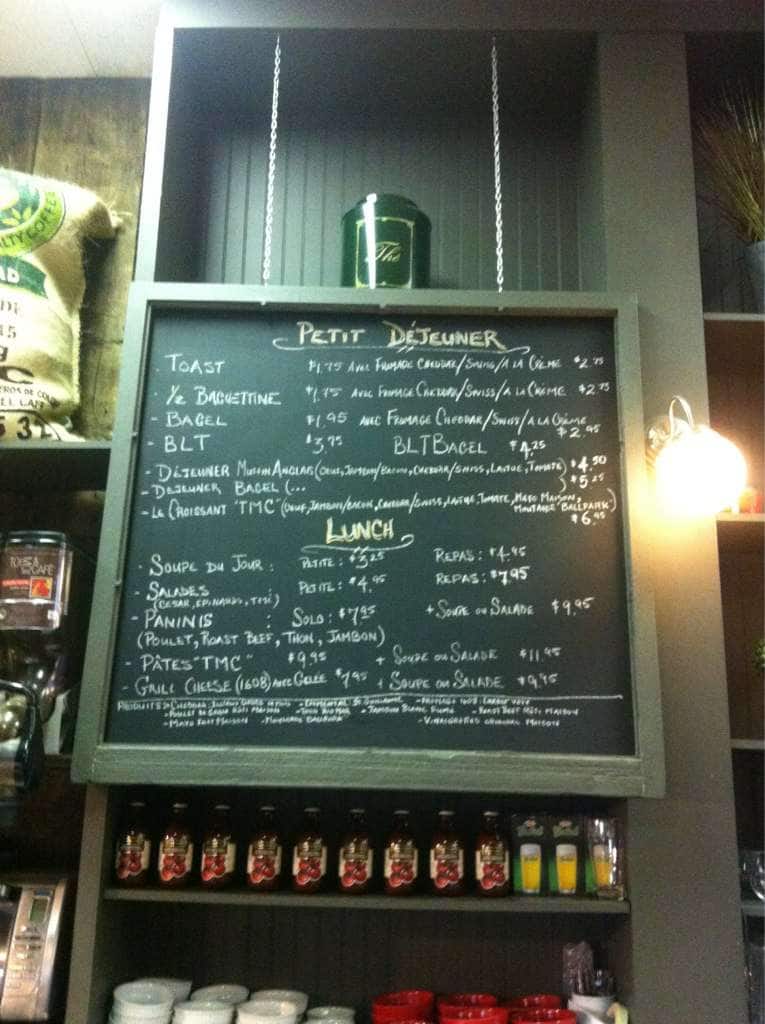 Thé
PETIT DÉJEUNER
- TOAST $1.75 AVEC FROMAGE CHEDDAR/SWISS/A LA CRÈME $2.75
- ½ BAGUETTINE $1.75 AVEC FROMAGE CHEDDAR/SWISS/A LA CRÈME $2.75
- BAGEL $1.95 AVEC FROMAGE CHEDDAR/SWISS/A LA CRÈME
$2.95
- BLT $3.75 BLT BAGEL $4.25
- DÉJEUNER MUFFIN ANGLAIS (OEUF, JAMBON/BACON, CHEDDAR/SWISS, LAITUE, TOMATE) $4.50
- DEJEUNER BAGEL (... ) $5.25
- LE CROISSANT "TMC" (OEUF, JAMBON/BACON, CHEDDAR/SWISS, LAITUE, TOMATE, MAYO MAISON,
MOUTARDE "BALLPARK")
$6.95
LUNCH
- SOUPE DU JOUR : PETITE : $3.25 REPAS : $4.95
- SALADES PETITE : $4.95 REPAS : $7.95
(CESAR, EPINARDS,
- PANINIS : SOLO : $7.95 + SOUPE OU SALADE $9.95
(POULET, ROAST BEEF, THON, JAMBON)
- PÂTES "TMC" $9.95 + SOUPE OU SALADE $11.95
- GRILL CHEESE (1608) AVEC GELÉE $7.95 + SOUPE OU SALADE $9.95
MAISON - JAMBON BLANC FUMÉ - ROAST BEEF RÔTI MAISON
- MAYO MAISON - VINAIGRETTES MAISON